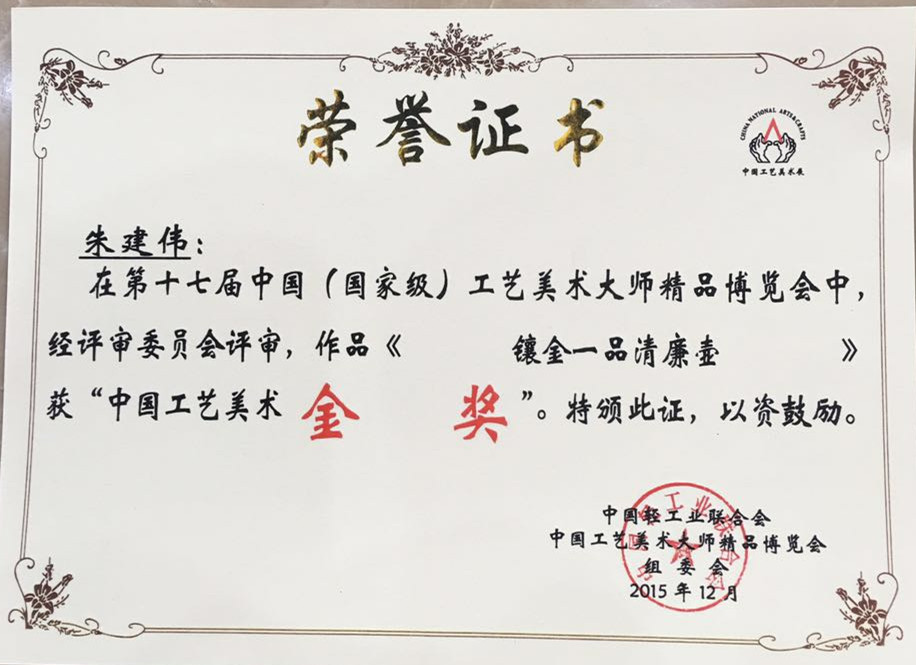 荣誉证书
CHINA NATIONAL ARTS&CRAFTS
中国工艺美术展
朱建伟：
在第十七届中国（国家级）工艺美术大师精品博览会中，
经评审委员会评审，作品《 镶金一品清廉壶 》
获“中国工艺美术 金 奖”。特颁此证，以资鼓励。
中国轻工业联合会
中国工艺美术大师精品博览会
组委会
2015年12月
中国轻工业联合会